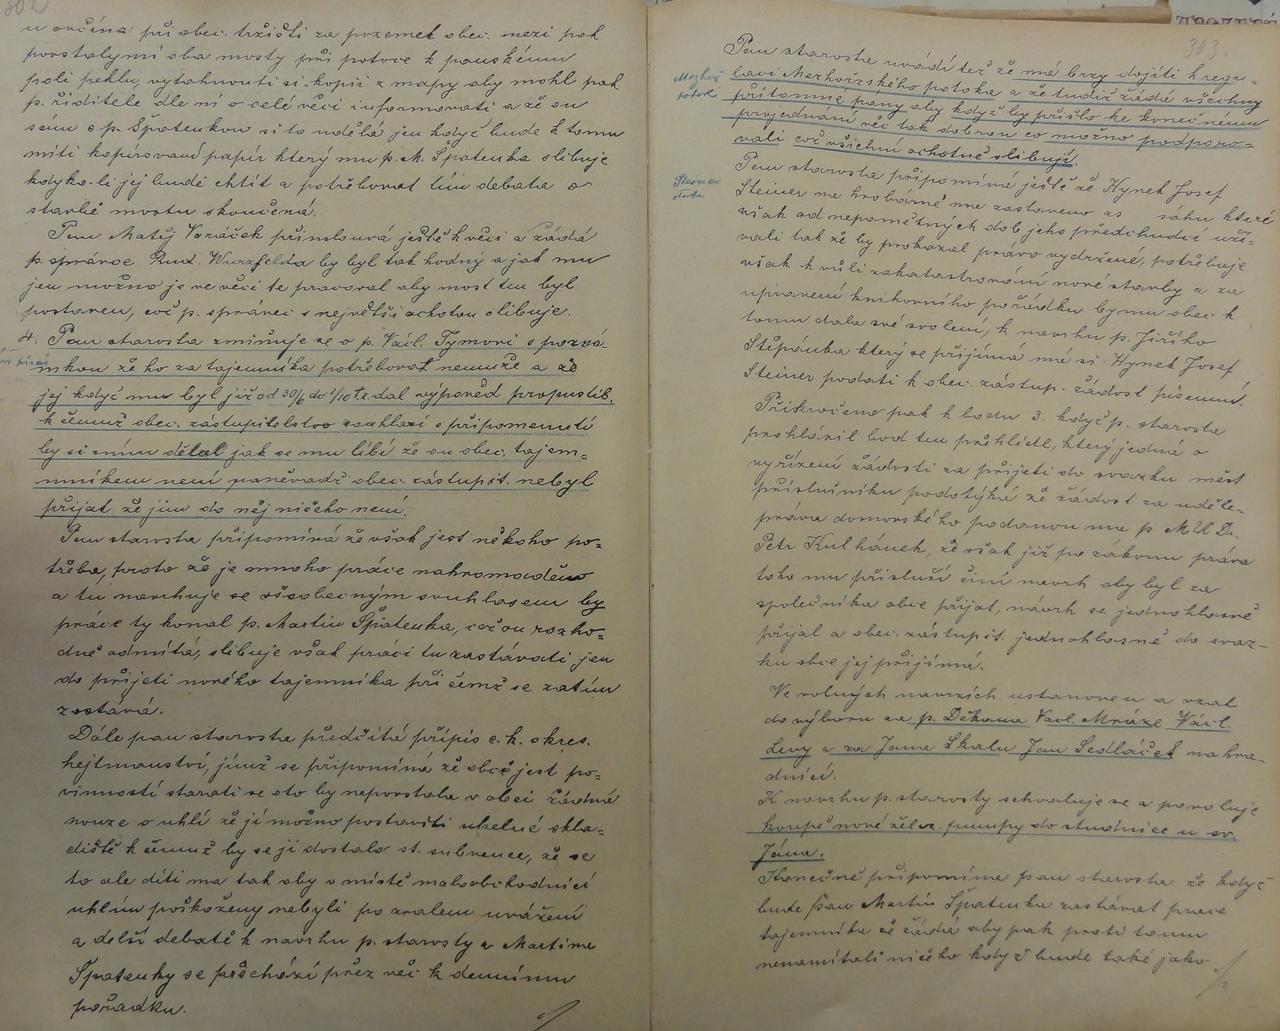 302
u ovčína při obec. tržišti za pozemek obec. mezi pak
povstalými oba mosty při potoce k panskému
poli peklu, vytáhnouti si kopii z mapy aby mohl pak
p. řiditele dle ní o celé věci informovati a že on
sám s p. Špatenkou si to udělá jen když bude k tomu
míti kopírovací papír který mu p. M. Špatenka slibuje
kdyko-li jej bude chtít a potřebovat tím debata o
stavbě mostu skončená.
Pan Matěj Voráček přimlouvá ještě k věci a žádá
p. správce Rud. Wurzfelda by byl tak hodný a jak mu
jen možno je ve věci té pracoval aby most ten byl
postaven, což p. správce s největší ochotou slibuje.
4. Pan starosta zmiňuje se o p. Václ. Tymovi s pozná-
mkou že ho za tajemníka potřebovat nemůže a že
jej když mu byl již od 30/6 do 1/10 t.r. dal výpověď propustil.
k čemuž obec. zástupitelstvo souhlasí s připomenutí
by si sám dělal jak se mu líbí že on obec. tajem-
mníkem není paněvadž obec. zástupit. nebyl
přijat že jim do něj ničeho není.
Pan starosta připomíná že však jest někoho po-
třeba, proto že je mnoho práce nahromaděno
a tu navrhuje se všeobecným souhlasem by
práce ty konal p. Martin Špatenka, což on rozho-
dně odmítá, slibuje však práci tu zastávati jen
do přijetí nového tajemníka při čemž se zatím
zůstává.
Dále pan starosta předčítá přípis c. k. okres.
hejtmanství, jímž se připomíná že obce jest po-
vinností starati se oto by nepovstala v obci žádná
nouze o uhlí že jí možno postaviti uhelné skla-
diště k čemuž by se jí dostalo st. subvence, že se
to ale díti má tak aby v místě maloobchodníci
uhlím poškozeny nebyli po zralém uvážení
a delší debatě k návrhu p. starosty a Martina
Špatenky se přechází přez věc k dennímu
pořadku.
303.
Pan starosta uvádí též že má brzy dojíti k regu-
laci Mezhořzského potoka a že tudíž žádá všechny
přítomné pany aby když by přišlo ke konečnému
projednaní věc tak dobrou co možno podporo-
vali což všichni ochotně slibují.
potoka
Pan starosta připomíná ještě že Hynek Josef
Steiner
stavba
Steiner na hrobárně má zastaveno as sáhu které
však od nepamětných dob jeho předchudci uží-
vali tak že by prokazal právo vydržené, potřebuje
však k vůli zakatastrování nové stavby a za
upravení knihovního pořádku by mu obec k
tomu dala své svolení, k navrhu p. Jiřího
Štěpánka který se přijímá má si Hynek Josef
Steiner podati k obec. zástup. žádost písemní.
Přikročeno pak k bodu 3. když p. starosta
prohlásil bod ten přehlídl, který jedná o
vyřízení žádosti za přijetí do svazku měst
příslušníku podotýká že žádost za uděle-
práva domovského podanou má p M.U.Dr.
Petr Kulhánek, že však již po zákonu práva
toho mu přísluší činí navrh aby byl za
společníka obce přijat, návrh se jednohlasně
přijal a obec. zástupit. jednohlasně do svaz-
ku obce jej přijímá.
Ve volných navrzích ustanoven a vzat
do výboru za p. Děkana Vacl. Mráze Václ.
Levy a za Jana Skalu Jan Sedláček nahra-
dníci.
K navrhu p. starosty schvaluje se a povoluje
koupě nové želez. pumpy do studnice u sv.
Jána.
Konečně připomíná pan starosta že když
bude pan Martin Špatenka zastávat prace
tajemníka že žádá aby pak proti tomu
nenamítali ničeho když bude také jako